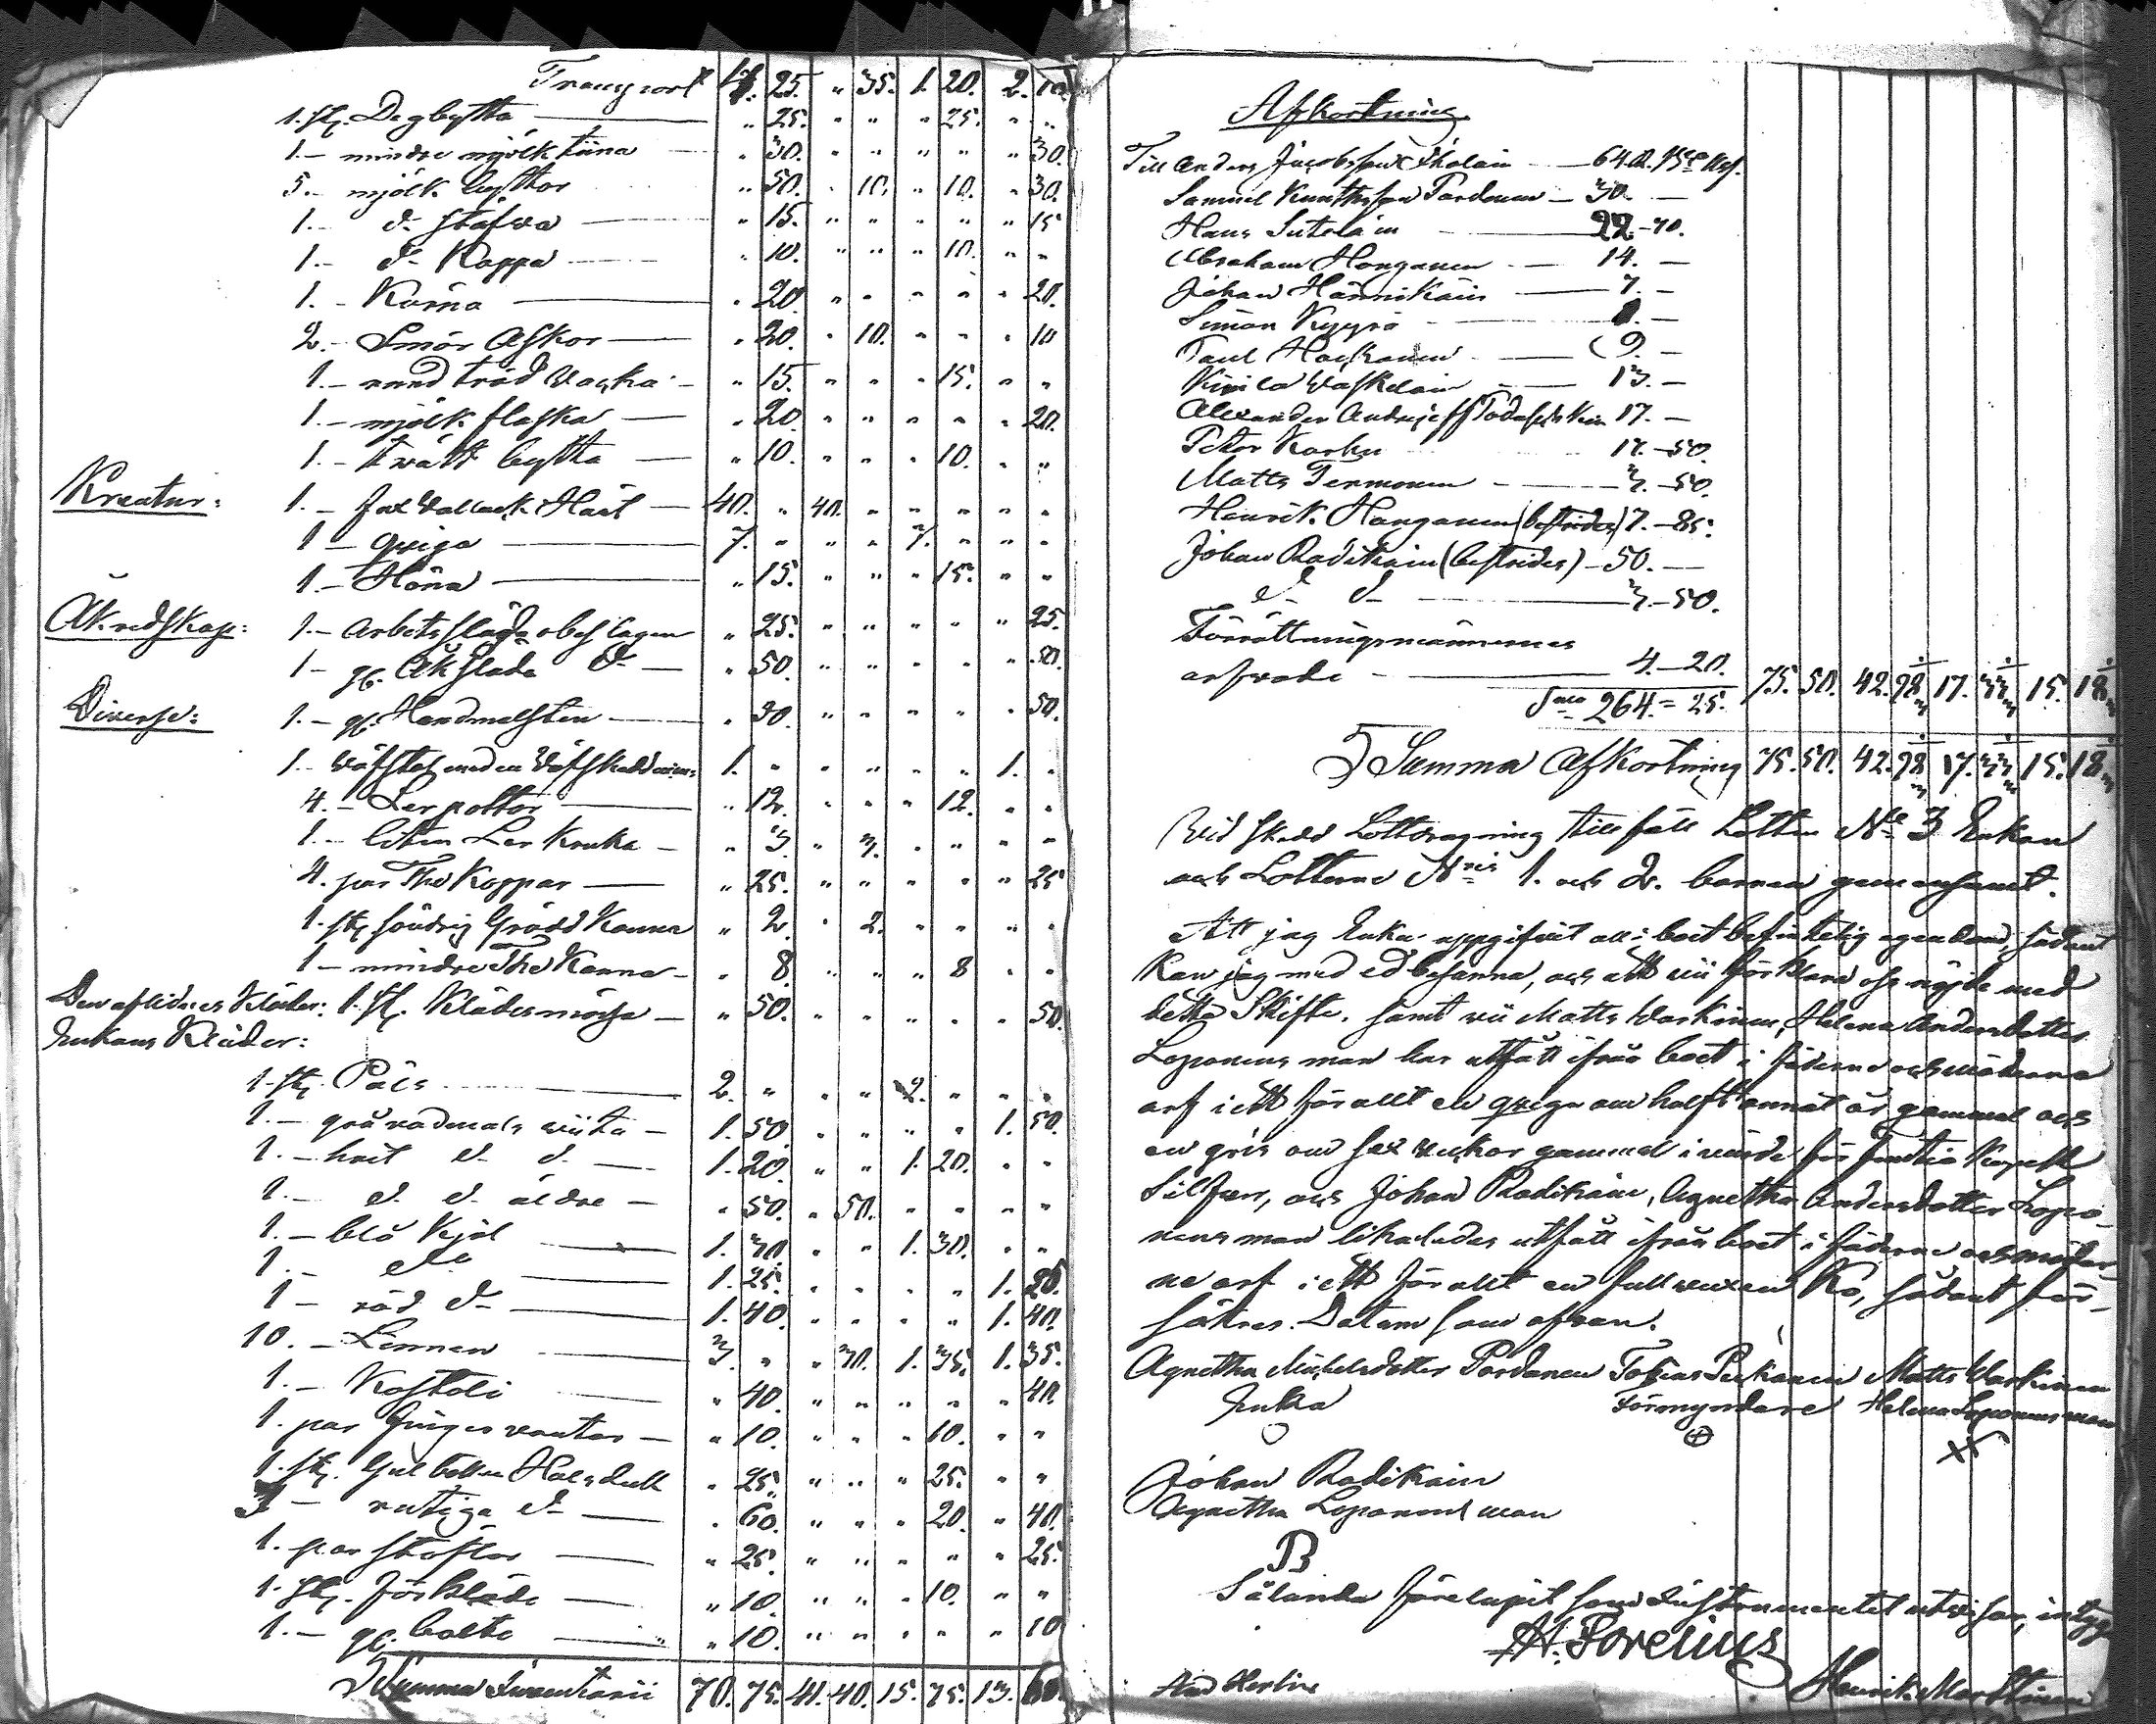 Transport 17. 25. " 35. 1. 20. 2. 10.
1. st. Degbytta — " 25. " " " 25. " "
1. – mindre mjölk tiina — " 30. " " " " " 30.
5. – mjölk byttor " 50. " 10. " 10. " 30.
1. – d– stäfva — " 15. " " " " " 15
1. – d– Kappa — " 10. " " " 10. " "
1. – Kärna — " 20 " " " " " 20.
2. – Smör Askor — " 20. " 10. " " " 10
1. – rund träd Vacka – " 15. " " " 15. " "
1. – mjölk flaska — " 20 " " " " " 20.
1. – tvätt bytta — " 10. " " " 10. " "
Kreatur: 1. – fux Vallack Häst — 40. " 40. " " " " "
1 – qviga — 7. " " " 7. " " "
1 – Höna — " 15. " " " 15. " "
Åkredskap: 1. – Arbetssläda obeslagen " 25. " " " " " 25.
1 – gl. Åk Släda d– — " 50. " " " " " 50.
Diverse: 1. – gl. Handmalsten — " 50. " " " " " 50.
1. – Väfstol med en Väfsked 1. " " " " " 1. "
4. – Ler pottor — " 12. " " " 12. " "
1. – liten Ler Kruka – " 3. " 3. " " " "
4. par The Koppar — " 25. " " " " " 25
1. st söndrig Grädd Kanna " 2. " 2. " " " "
1 – mindre The Kanna – " 8. " " " 8 " "
Den aflidnes Kläder: 1. st. Klädesmössa — " 50. " " " " " 50.
Enkans Kläder:
1. st. Päls — 2. " " " 2. " " "
1. – grå vadmals viita – 1. 50. " " " " 1. 50.
1. – hvit d. d. — 1. 20. " " 1. 20. " "
1. – d. d. äldre – " 50. " 50. " " " "
1. – blå Kjol — 1. 30. " " 1. 30. " "
1. – do — 1. 25. " " " " 1. 25.
1 – röd d– — 1. 40. " " " " 1. 40.
10. – Linnen — 3. " " 30. 1. 35. 1. 35.
1. – Kostoli — " 40. " " " " " 40.
1. par fingervantar — " 10. " " " 10. " "
1. st. Halsduk " 25. " " " 25. " "
3 – rutiga d– — " 60. " " " 20. " 40.
1. par stöflar — " 25. " " " " " 25.
1. st. förkläde — " 10. " " " 10. " "
1. – gl. bälte — " 10. " " " " " 10
Summa Inventarii 70. 75. 41. 40. 15. 75. 13. 60.
Afkortning.
Till Anders Jacobsson — 64.
Samuel Pardanen – 30. —
Hans Sutelain — 22. – 70.
Abraham Hanganen — 14. —
Johan Hännikäin — 7. –
Simon Kyyrö — –
Paul — 9. –
— 13. –
Alexander Andrejeff 17. –
Peter Karhu 17. – 50.
Matts Termonen — 3. – 50.
Henrik Hanganen (bestrides) 7. – 85.
Johan Radikain (bestrides) – 50. —
d– d– — 3. – 50.
Förrättningsmännernes
arfvode — 4. – 20.
Sma 264. = 25. 75. 50. 42. 17. 15.
Summa Afkortning 75. 50. 42. 17. 15.
Vid skedd Lottdragning tillföll Lotten No 3 Enkan
och Lotterne Nris 1. och 2. barnen gemensamt.
Att jag Enka uppgifvit all i boet befintelig egendom, sådant
kan jag med ed besanna, och att vii förklara oss nöjde med
detta Skifte, samt vii Matts Warkinen, Helena Andersdotter
Loponens man har utfått ifrån boet i fäderne och möderne
arf i ett för allt en qviga om halft annat år gammal och
en gris om sex veckor gammal i värde för femtio Kopek
Silfver, och Johan Radikäin, Agnetha Andersdotter Lopo-
nens man likaledes utfått ifrån boet i fäderne och möder-
ne arf i ett för allt en fullvuxen Ko, sådant för-
säkras. Datum som ofvan.
Agnetha Michelsdotter Pardanen Tobias Matts Warkinen
Enka Förmyndare Helena Loponens man
Johan Radikäin
Agnetha Loponens man
Sålunda förelupit som Instrumentet utvisar, intyga
A. H. Forelius
Henrik Marttinen